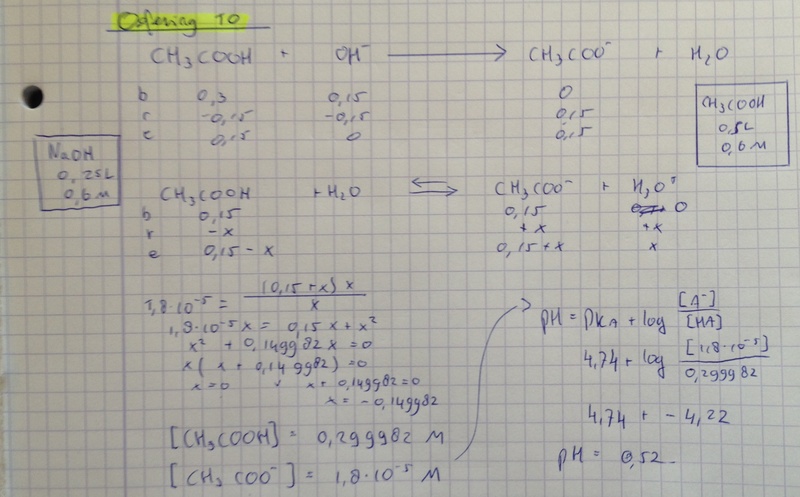 Oefening 10
CH₃COOH + OH⁻ ⟶ CH₃COO⁻ + H₂O
b 0,3 0,15 0
r -0,15 -0,15 0,15
e 0,15 0 0,15
CH₃COOH
0,5L
0,6 M
NaOH
0,25L
0,6 M
CH₃COOH + H₂O ⇌ CH₃COO⁻ + H₃O⁺
b 0,15 0,15 0
r -x +x +x
e 0,15 - x 0,15 + x x
1,8·10⁻⁵ = (0,15 + x) x / x
1,8·10⁻⁵ x = 0,15 x + x²
x² + 0,149982 x = 0
x ( x + 0,149982) = 0
x = 0 v x + 0,149982 = 0
x = - 0,149982
[CH₃COOH] = 0,299982 M
[CH₃COO⁻] = 1,8·10⁻⁵ M
pH = pKA + log [A⁻] / [HA]
4,74 + log [1,8·10⁻⁵] / 0,299982
4,74 + - 4,22
pH = 0,52